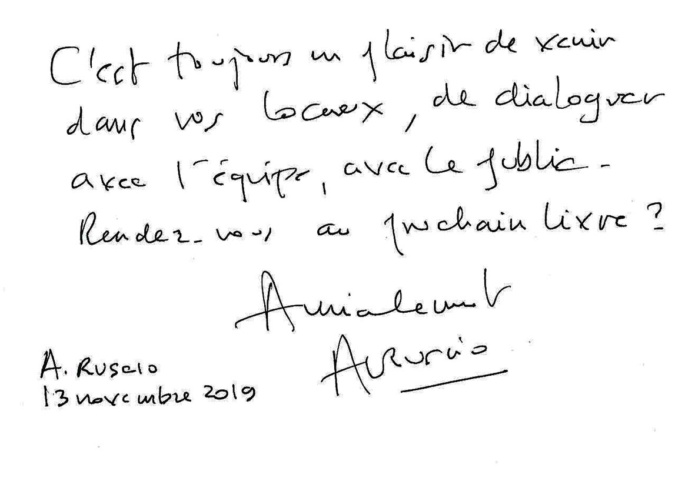 C'est toujours un plaisir de venir
dans vos locaux, de dialoguer
avec l'équipe, avec le public.
Rendez-vous au prochain livre ?
Amicalement
A. Ruscio
13 novembre 2019